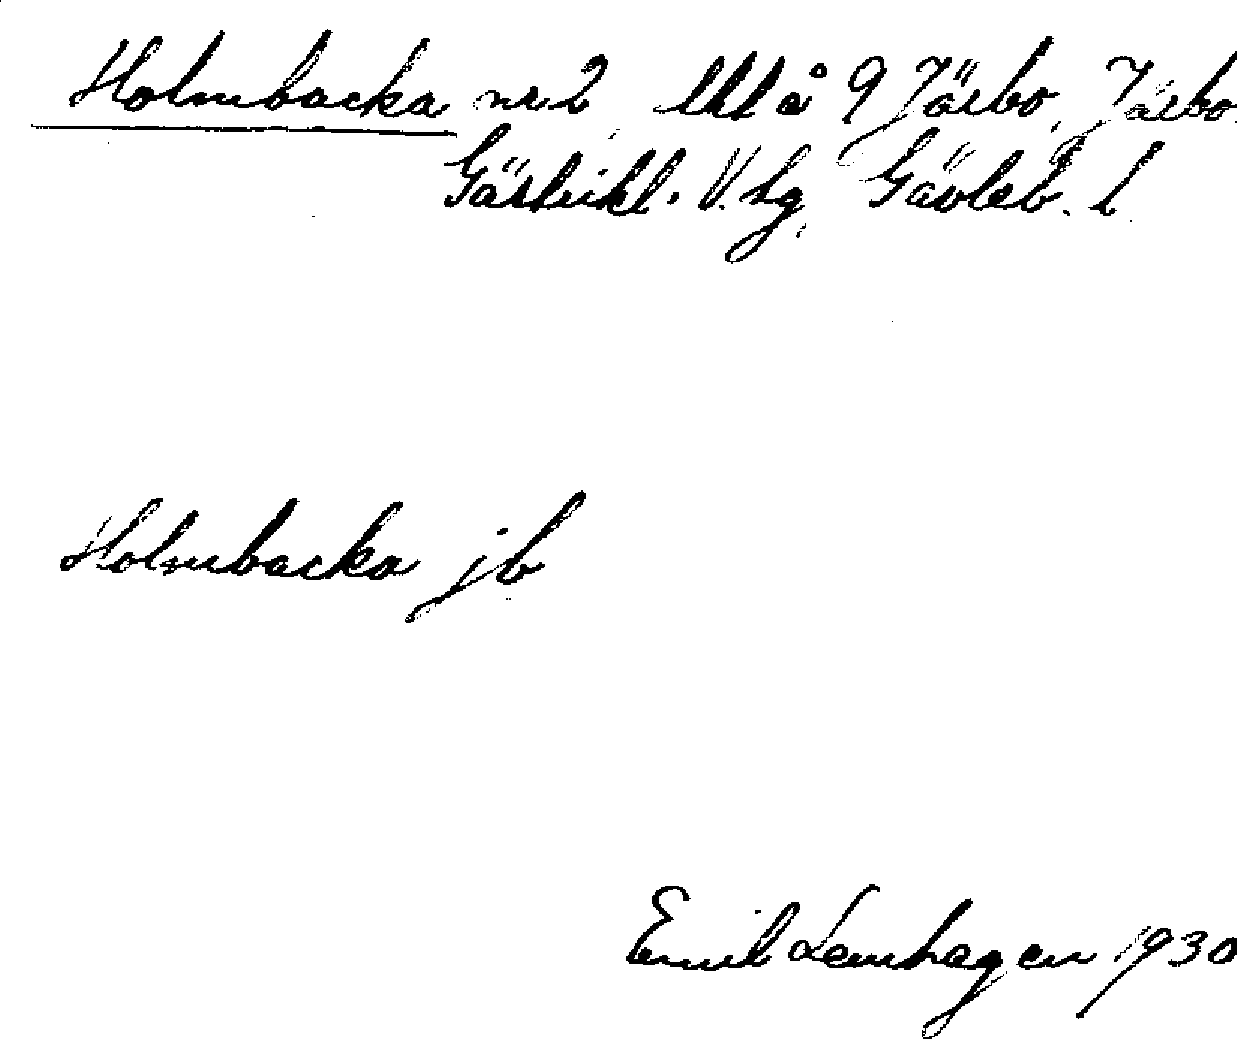 Holmbacka nr 2, lht å 9 Järbo, Järbo
Gästrikl. V. tg, Gävleb. l.
Holmbacka jb
Emil Lemhagen 1930